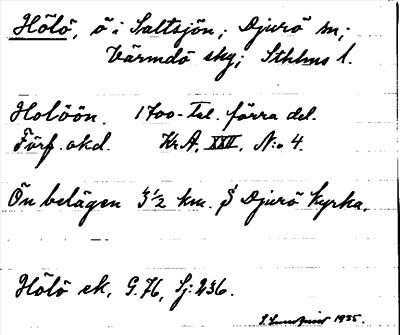 Hölö, ö i Saltsjön; Djurö sn;
Värmdö skg; Sthlms l.
Holöön. 1700-tal. förra del.
Förf. okd. Kr.A. XXV, N:o 4.
Ön belägen 3½ km. S Djurö kyrka.
Hölö ek, G.76, Sj: 236.
1935.